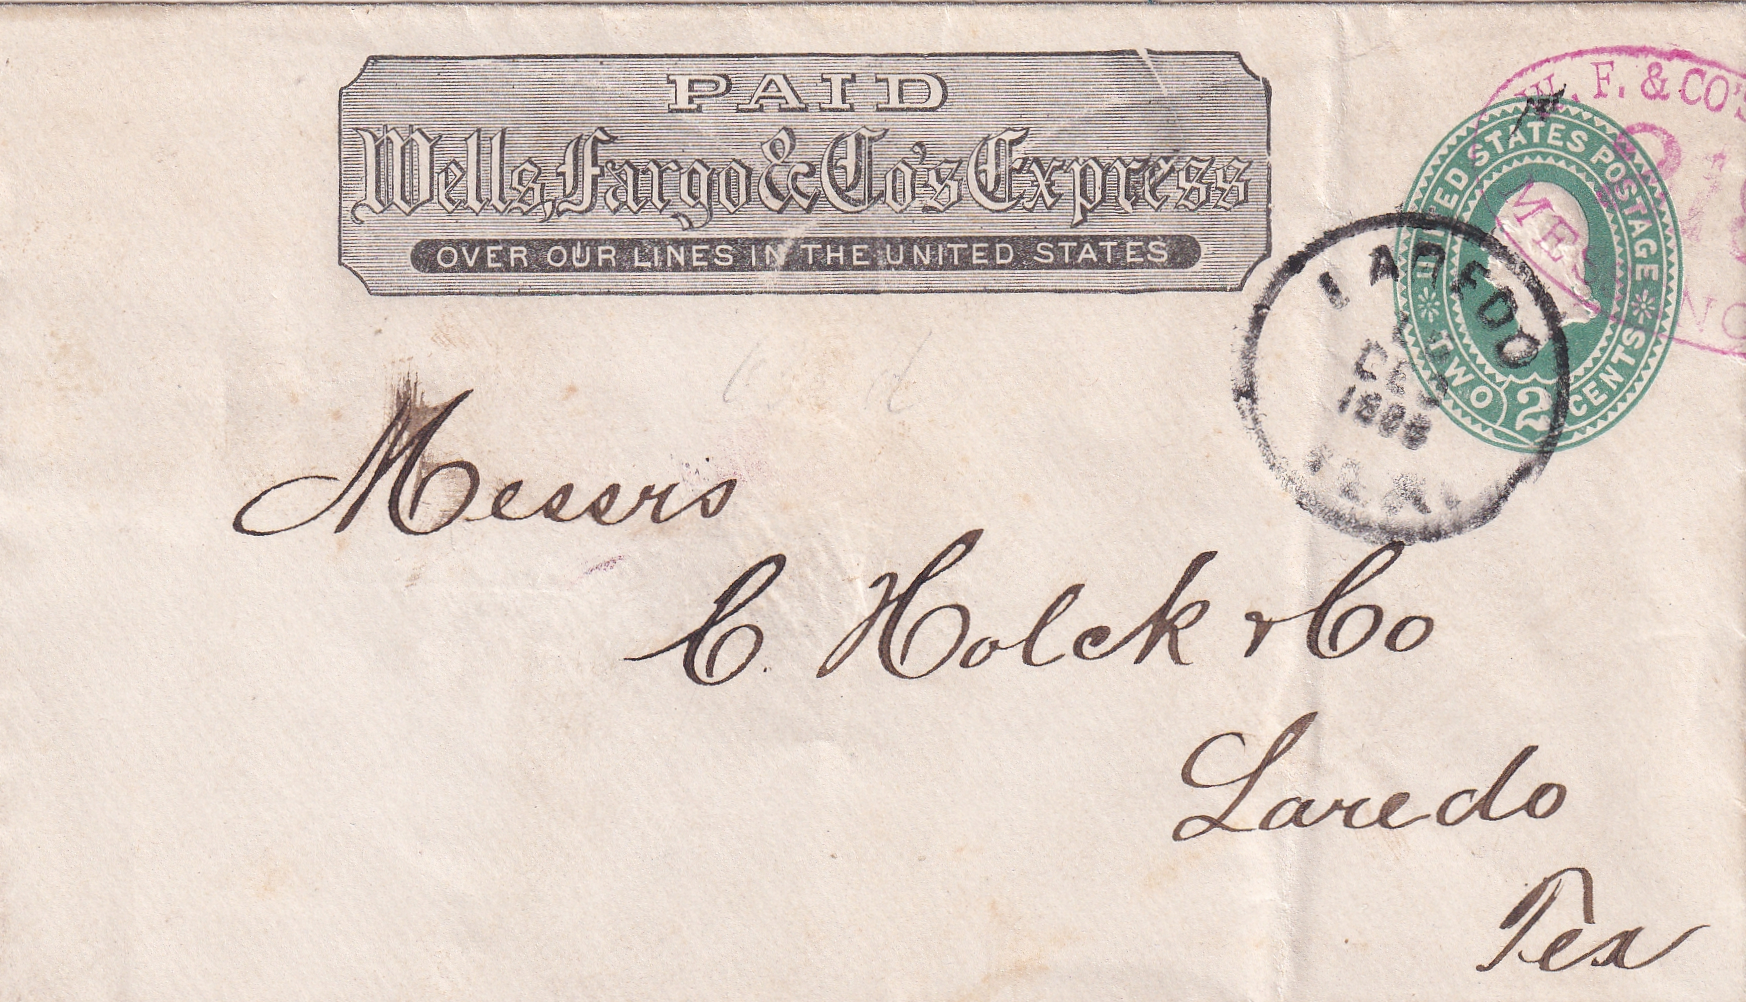 PAID
Wells, Fargo & Co's Express
OVER OUR LINES IN THE UNITED STATES
W. F. & CO'S
UNITED STATES POSTAGE
TWO 2 CENTS
LAREDO
DEC
TEX.
Messrs
C. Holck & Co
Laredo
Tex